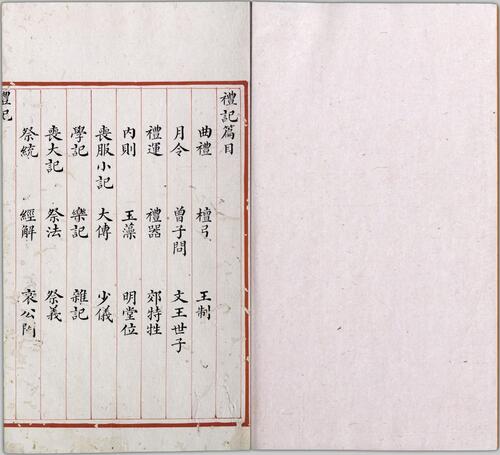 禮記篇目
曲禮 檀弓 王制
月令 曾子問 文王世子
禮運 禮器 郊特牲
內則 玉藻 明堂位
喪服小記 大傳 少儀
學記 樂記 雜記
喪大記 祭法 祭義
祭統 經解 哀公問
禮記